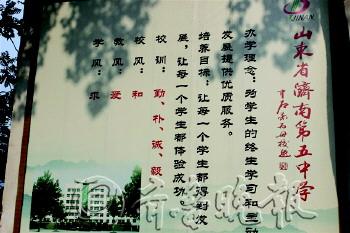 JINAN
山東省濟南第五中学
办学理念：为学生的终生学习和主动
发展提供优质服务。
培养目标：让每一个学生都得到发
展，让每一个学生都体验成功。
校训：勤、朴、诚、毅
校风：和
教风：爱
学风：求
齐鲁晚报